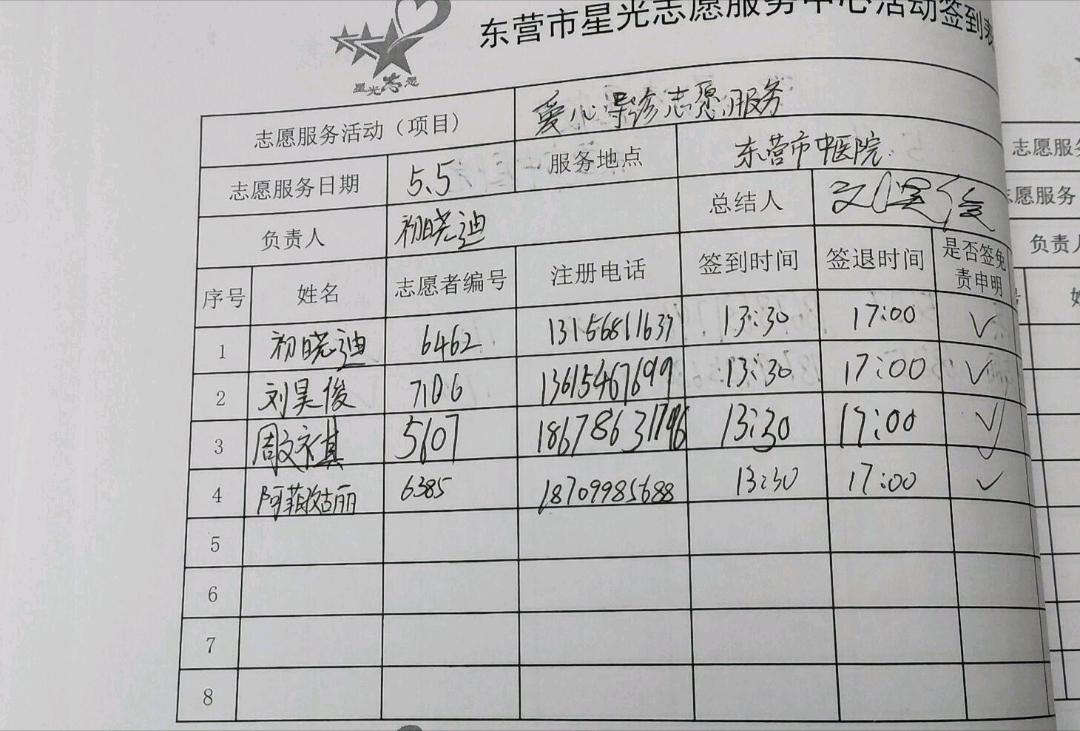 东营市星光志愿服务中心活动签到表
星光志愿
志愿服务活动（项目） 爱心导诊志愿服务
志愿服务日期 5.5 服务地点 东营市中医院
负责人 初晓迪 总结人
序号 姓名 志愿者编号 注册电话 签到时间 签退时间 是否签免责申明
1 初晓迪 6462 13156811637 13:30 17:00 ✓
2 刘昊俊 7106 13615467699 13:30 17:00 ✓
3 周文祺 5607 18678631796 13:30 17:00 ✓
4 阿菲敏古丽 6385 18709985688 13:30 17:00 ✓
5
6
7
8
志愿服务
志愿服务
负责人